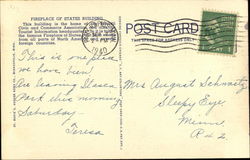 FIREPLACE OF STATES BUILDING
This building is the home of the
Civic and Commerce Association, and
Tourist Information headquarters. It is
the famous Fireplace of States
from all parts of North America and
foreign countries.
POST CARD
THIS SPACE FOR ADDRESS ONLY
1940
This is one place
we have been.
Are leaving Itasca
Park this morning
Saturday
Teresa
Mrs August Schwartz
Sleepy Eye,
Minn
R # 2.